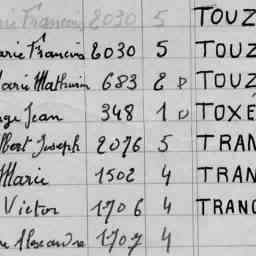 rie Francois 2030 5 TOUZ
arie Francois 2030 5 TOUZ
Marie Mathurin 683 2 D TOUZ
rge Jean 348 1 D TOXE
lbert Joseph 2076 5 TRAN
Marie 1502 4 TRAN
Victor 1706 4 TRANC
Alexandre 1707 4